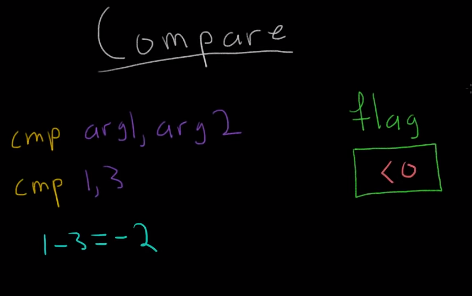 Compare
cmp arg1, arg2
cmp 1,3
1-3=-2
flag
<0